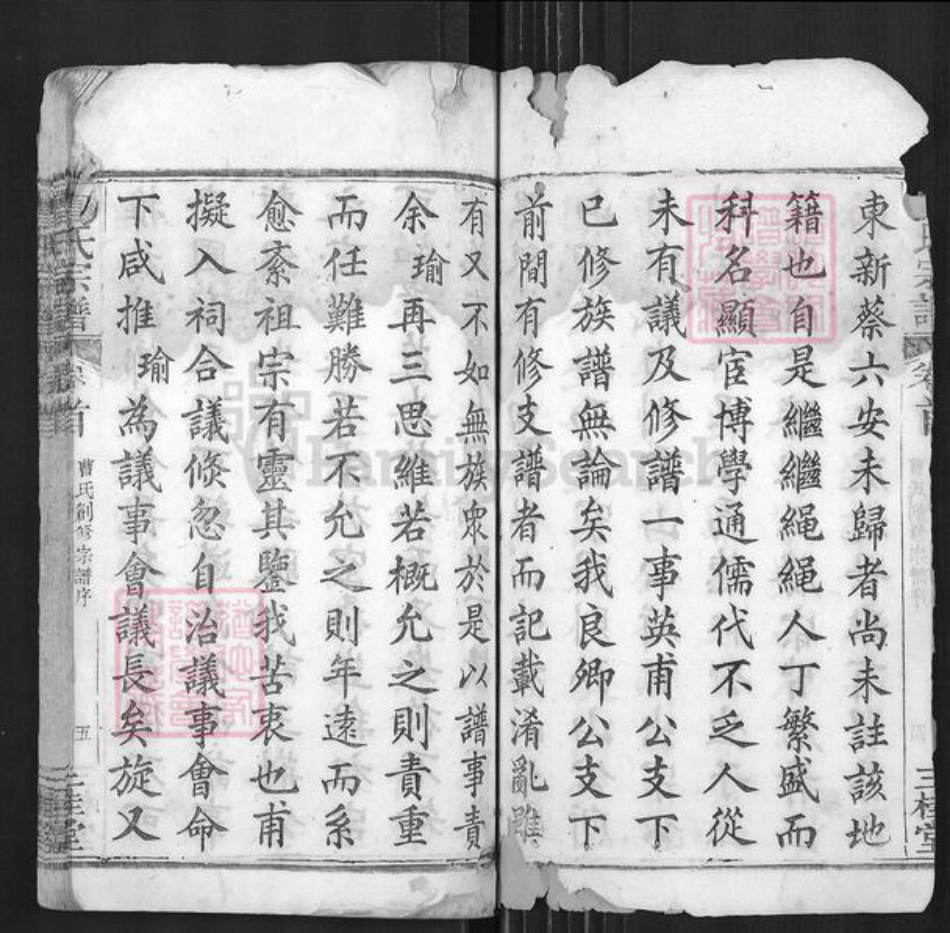 東新蔡六安未歸者尚未註該地
籍也自是繼繼繩繩人丁繁盛而
科名顯宦博學通儒代不乏人從
未有議及修譜一事英甫公支下
已修族譜無論矣我良卿公支下
前間有修支譜者而記載淆亂雖
有又不如無族衆於是以譜事責
余瑜再三思維若概允之則責重
而任難勝若不允之則年遠而系
愈紊祖宗有靈其鑒我苦衷也甫
擬入祠合議倏忽自治議事會命
下咸推瑜為議事會議長矣旋又
氏宗譜
首
曹氏創修宗譜序
五
三桂堂
三桂堂
FamilySearch